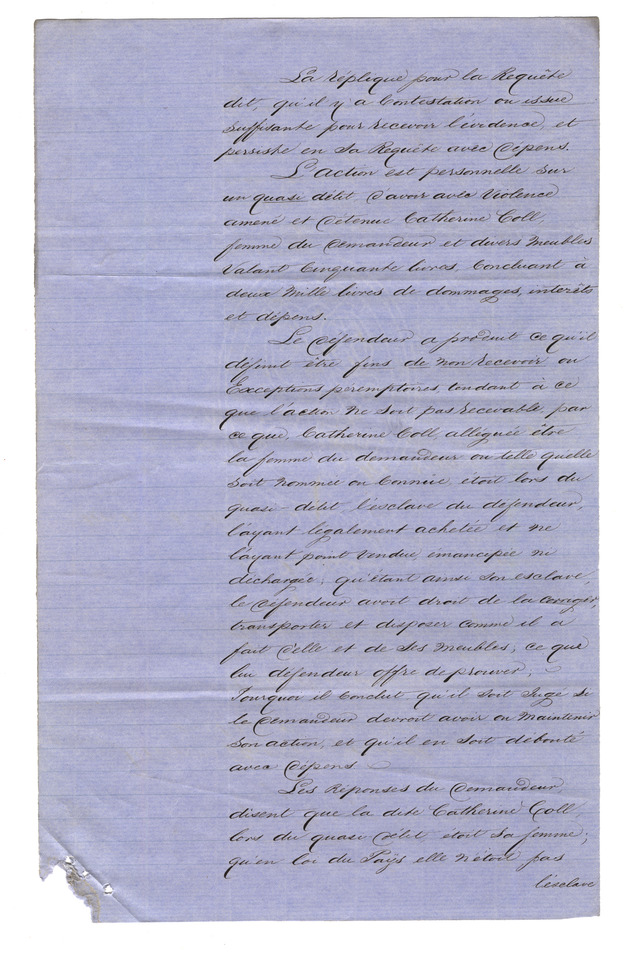 La réplique pour la Requête
dit, qu'il y a Contestation ou issue
suffisante pour recevoir l'évidence, et
persiste en Sa Requête avec Dépens.
L'action est personnelle sur
un quasi délit d'avoir avec Violence
amené et Détenue Catherine Coll,
femme du Demandeur et divers Meubles
Valant Cinquante livres, Concluant à
deux Mille livres de dommages, intérêts
et dépens.
Le Défendeur a produit ce qu'il
définit être fins de Non recevoir ou
Exceptions péremptoires, tendant à ce
que l'action Ne Soit pas recevable, par
ce que, Catherine Coll, alléguée être
la femme du demandeur ou telle quelle
soit nommée ou Connue, étoit lors du
quasi-délit, l'esclave du défendeur,
l'ayant légalement achetée et ne
l'ayant point Vendue, emancipée ni
déchargée; qu'étant ainsi Son esclave,
le Défendeur avoit droit de la corriger,
transporter et disposer comme il a
fait d'elle et de Ses Meubles, ce que
lui défendeur offre de prouver.
Pourquoi il Conclut qu'il soit Jugé si
le Demandeur devroit avoir ou Maintenir
Son action, et qu'il en soit débouté
avec Dépens
Les Réponses du Demandeur,
disent que la dite Catherine Coll,
lors du quasi Délit étoit Sa femme;
qu'en loi du Pays elle N'étoit pas
l'esclave